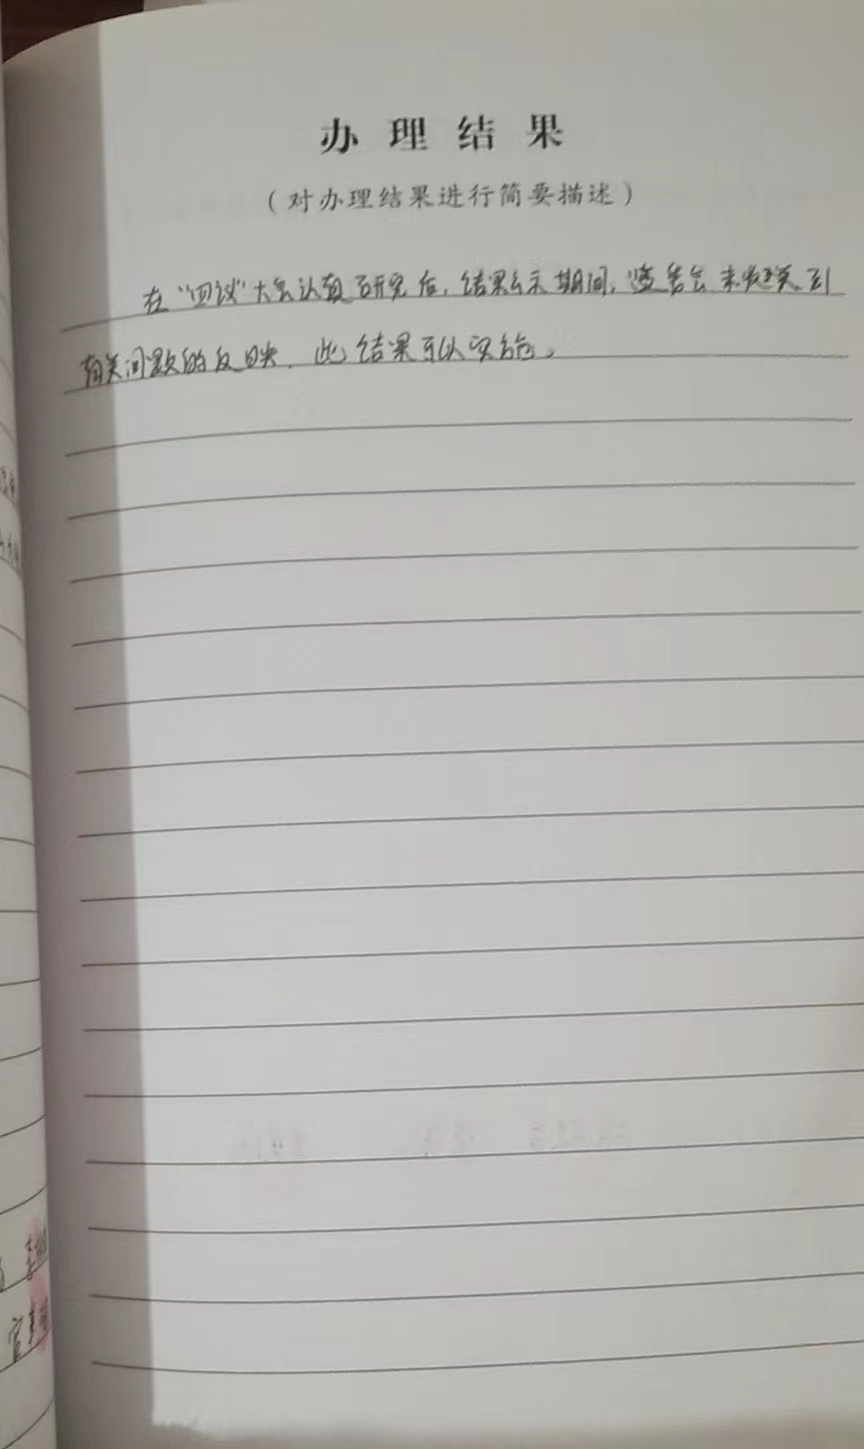 办理结果
（对办理结果进行简要描述）
在“四议”大会认真研究后，结果公示期间，监委会未收到
有关问题的反映，此结果可以实施。